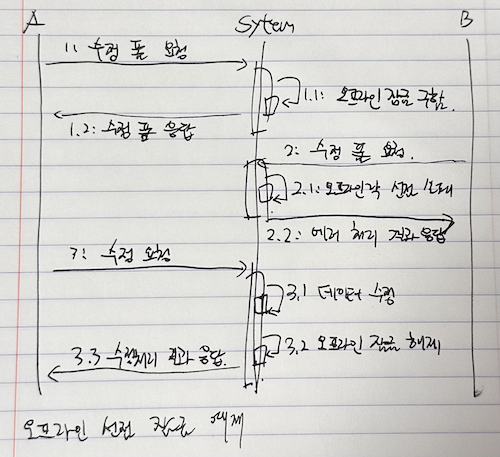 A
Sytem
B
1: 수정 폼 요청
1.1: 오프라인 잠금 구함.
1.2: 수정 폼 응답
2: 수정 폼 요청.
2.1: 오프라인 선점
2.2: 에러 처리 결과 응답
3: 수정 요청
3.1 데이터 수정
3.2 오프라인 잠금 해제
3.3 수정처리 결과 응답.
오프라인 선점 잠금 예제